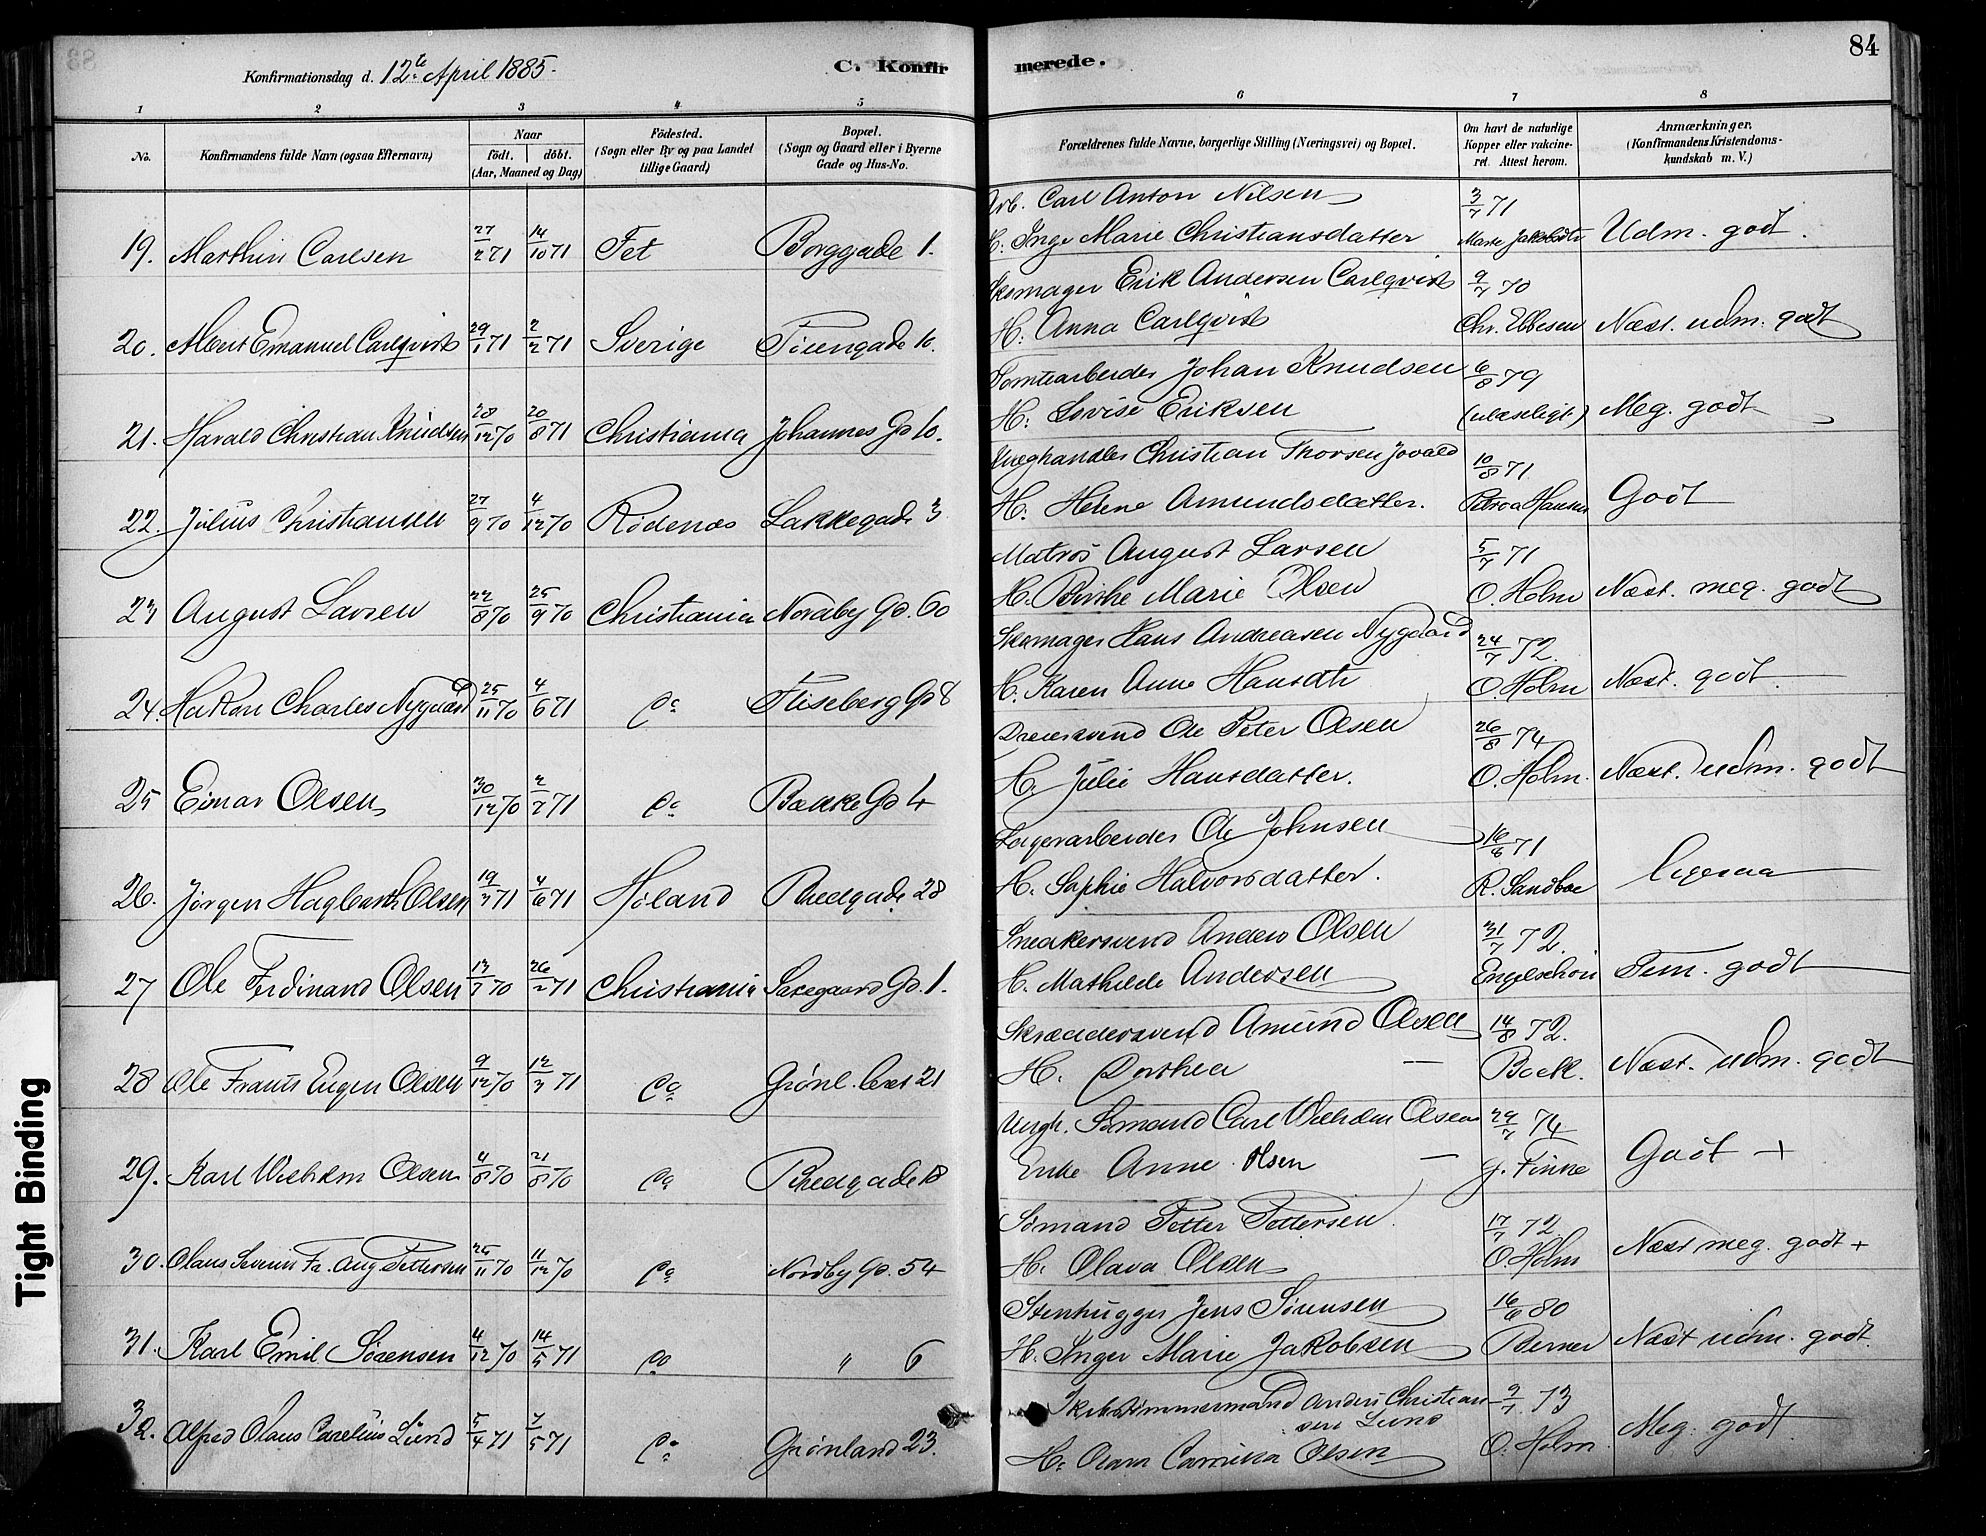 84
Konfirmationsdag d. 12te April 1885.
C. Konfirmerede.
1 2 3 4 5 6 7 8
No. Konfirmandens fulde Navn (ogsaa Efternavn) Naar födt. döbt. (Aar, Maaned og Dag) Födested. (Sogn eller By og paa Landet tillige Gaard) Bopæl. (Sogn og Gaard eller i Byerne Gade og Hus-No. Forældrenes fulde Navne, borgerlige Stilling (Næringsvei) og Bopæl. Om havt de naturlige Kopper eller vakcineret. Attest herom. Anmærkninger. (Konfirmandens Kristendomskundskab m. V.)
Arb. Carl Anton Nilsen 3/7 71
19. Marthin Carlsen 27/2 71 14/10 71 Fet Borggade 1. H: Inge Marie Christiansdatter Marie Jakobsdtr Udm. godt.
Skomager Erik Andersen Carlqvist 9/7 70
20. Albert Emanuel Carlqvist 29/1 71 2/2 71 Sverige Töiengade 10. H: Anna Carlqvist Chr. Ebbesen Næst. udm. godt
Tomtearbeider Johan Knudsen 6/8 79
21. Harald Christian Knudsen 28/12 70 20/8 71 Christiania Johannes Gd 10. H: Lovise Eriksen (ulæseligt) Meg. godt
Kvæghandler Christian Thorsen Jovald 10/8 71
22. Julius Christiansen 27/9 70 4/12 70 Rödenæs Lakkegade 3 H. Helene Amundsdatter. Petroa Hansen Godt
Matros August Larsen 5/7 71
23 August Larsen 22/8 70 25/9 70 Christiania Nordby Gd. 60 H. Birthe Marie Olsen O. Holm Næst. meg. godt
Skomager Hans Andreasen Nygaard 24/7 72.
24. Hakon Charles Nygaard 25/11 70 4/6 71 do Fliseberg Gd 8 H. Karen Anne Hansdtr O. Holm Næst. godt
Dreiersvend Ole Peter Olsen 26/8 74
25 Einar Olsen 30/12 70 2/7 71 do Bakke Gd 4 H. Julie Hansdatter. O. Holm. Næst. udm. godt
Lagerarbeider Ole Johnsen 16/8 71
26. Jörgen Hagbarth Olsen 19/3 71 4/6 71 Höland Bredgade 28 H. Sophie Halvorsdatter. R. Sandboe ligesaa
Snedkersvend Anders Olsen 31/7 72.
27 Ole Ferdinand Olsen 13/7 70 26/2 71 Christiania Saxegaard Gd. 1. H. Mathilde Andersen Engelschiön Tem. godt
Skræddersvend Amund Olsen 14/8 72.
28 Ole Frants Eugen Olsen 9/12 70 12/3 71 do Grönl. leret 21 H. Dorthea — Boeck. Næst. udm. godt
Ungk. Sömand Carl Wilhelm Olsens 29/7 74
29. Karl Wilhelm Olsen 4/8 70 21/8 70 do Bredgade 18 Enke Anne Olsen — J. Finne Godt +
Sömand Petter Pettersen. 17/7 72
30. Olaus Severin Fr. Aug Pettersen 25/11 70 11/12 70 do Nordby Gd. 54 H. Olava Olsen O Holm Næst meg. godt +
Stenhugger Jens Sörensen 16/6 80
31. Karl Emil Sörensen 4/12 70 14/5 71 do " 6 H. Inger Marie Jakobsen Berner Næst udm. godt.
Skibstimmermand Anders Christiansen Lund 9/7 73
32. Alfred Olaus Carelius Lund 5/4 71 7/5 71 do Grönland 23. H. Olava Olsen O. Holm Meg. godt
Tight Binding